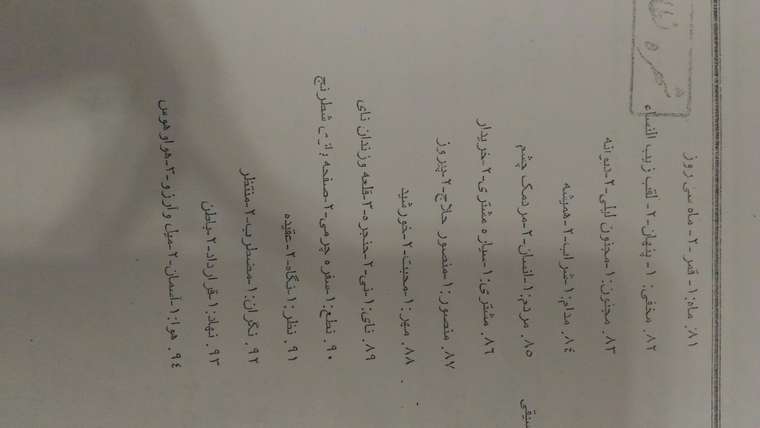 ۸۱. ماه: ۱- قمر ۲- ماه سی روز
۸۲. مخفی: ۱- پنهان ۲- لقب زیب النساء
۸۳. مجنون: ۱-مجنون لیلی ۲-دیوانه
۸۴. مدام: ۱-شراب ۲-همیشه
۸۵. مردم: ۱-انسان ۲-مردمک چشم
۸۶. مشتری: ۱-سیاره مشتری ۲-خریدار
۸۷. منصور: ۱-منصور حلاج ۲-پیروز
۸۸. مهر: ۱-محبت ۲-خورشید
۸۹. نای: ۱-نی ۲-حنجره ۳-قلعه وزندان نای
۹۰. نطع: ۱-سفره چرمی ۲-صفحه شطرنج
۹۱. نظر: ۱-نگاه ۲-عقیده
۹۲. نگران: ۱-مضطرب ۲-منتظر
۹۳. نهاد: ۱-قرارداد ۲-باطن
۹۴. هوا: ۱-آسمان ۲-میل و آرزو ۳-هوا و هوس